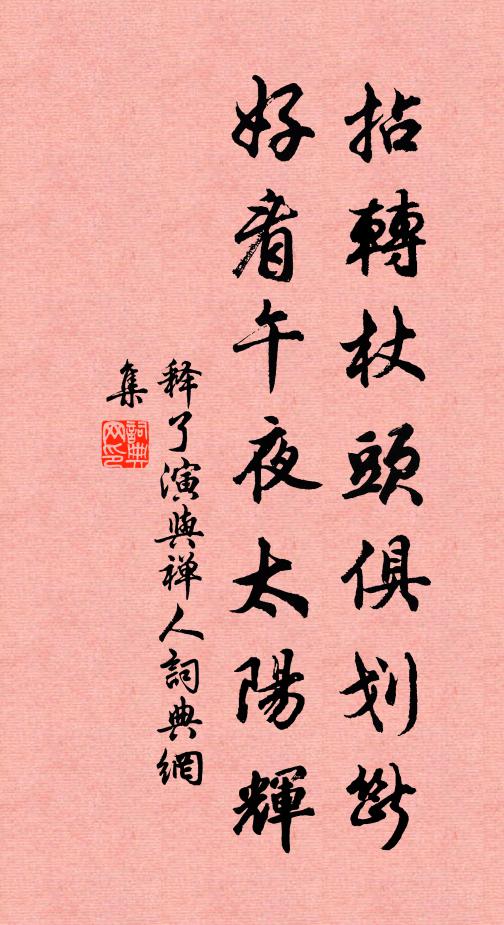 拈轉杖頭俱划斷
好看午夜太陽輝
释了演與禅人詞典網
集
詞典
网印